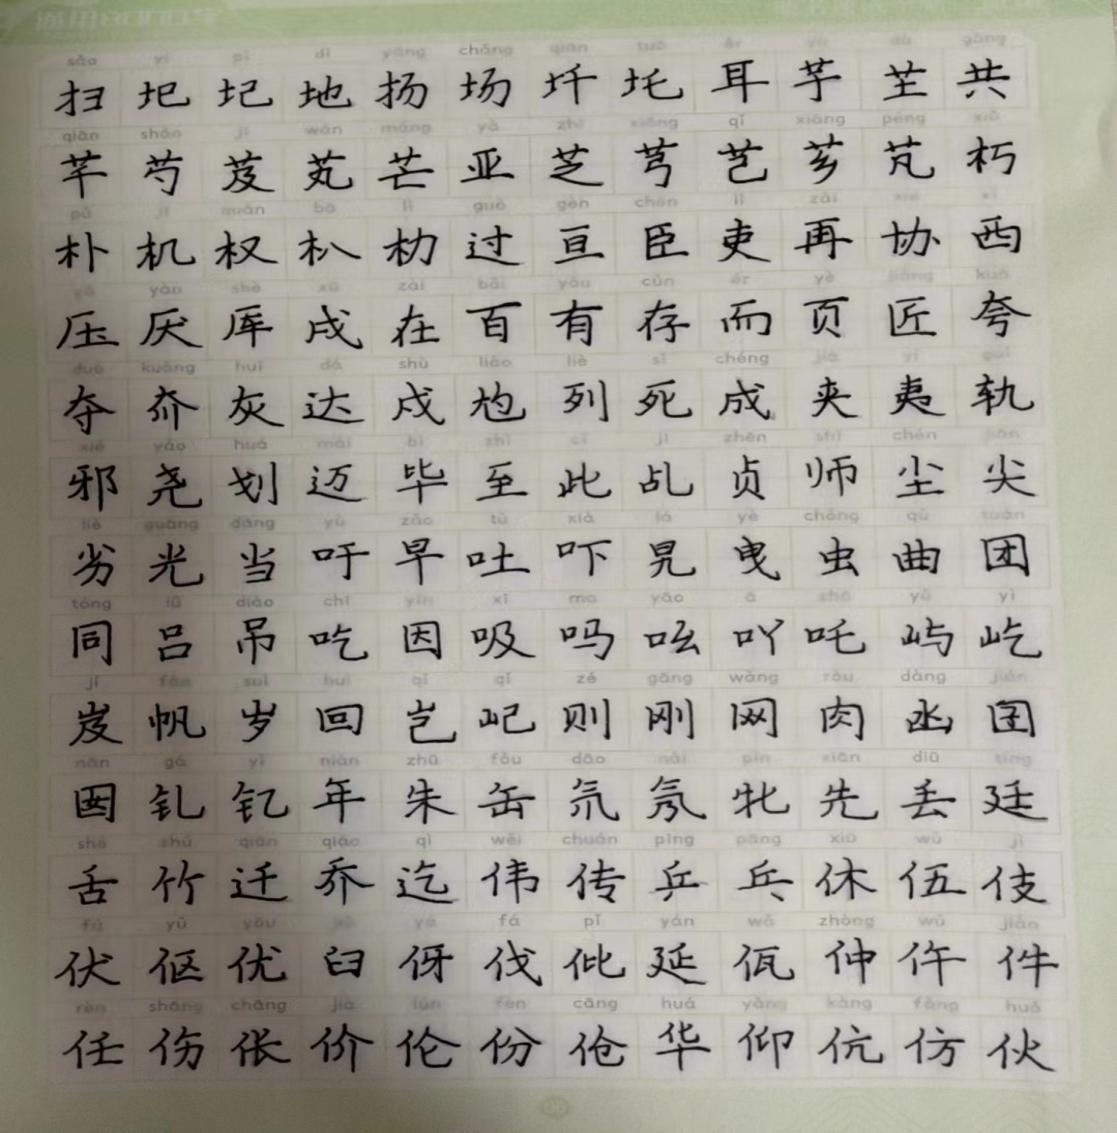 通用8000字
sǎo yí pǐ dì yáng chǎng qiān tuō ěr yù dù gòng
扫 圯 圮 地 扬 场 圲 圫 耳 芋 芏 共
qiān sháo jī wán máng yà zhī xiōng qǐ xiāng péng xiǔ
芊 芍 芨 芄 芒 亚 芝 芎 芑 芗 芃 朽
pǔ jī quán bā lì guò gèn chén lì zài xié xī
朴 机 权 朳 朸 过 亘 臣 吏 再 协 西
yā yàn shè xū zài bǎi yǒu cún ér yè jiàng kuā
压 厌 厍 戌 在 百 有 存 而 页 匠 夸
duó kuǎng huī dá shù liào liè sǐ chéng jiā yí guǐ
夺 夼 灰 达 戍 尥 列 死 成 夹 夷 轨
xié yáo huá mài bì zhì cǐ jī zhēn shī chén jiān
邪 尧 划 迈 毕 至 此 乩 贞 师 尘 尖
liè guāng dāng yù zǎo tǔ xià lá yè chóng qǔ tuán
劣 光 当 吁 早 吐 吓 旯 曳 虫 曲 团
tóng lǚ diào chī yīn xī ma yāo ā zhā yǔ yì
同 吕 吊 吃 因 吸 吗 吆 吖 吒 屿 屹
jí fān suì huí qǐ qǐ zé gāng wǎng ròu dàng jiǎn
岌 帆 岁 回 岂 屺 则 刚 网 肉 凼 囝
nān gá yǐ nián zhū fǒu dāo nǎi pìn xiān diū tíng
囡 钆 钇 年 朱 缶 氘 氖 牝 先 丢 廷
shé zhú qiān qiáo qì wěi chuán pīng pāng xiū wǔ jì
舌 竹 迁 乔 迄 伟 传 乒 乓 休 伍 伎
fú yǔ yōu jiù yá fá pǐ yán wǎ zhòng wǔ jiàn
伏 伛 优 臼 伢 伐 仳 延 佤 仲 仵 件
rèn shāng chāng jià lún fèn cāng huá yǎng kàng fǎng huǒ
任 伤 伥 价 伦 份 伧 华 仰 伉 仿 伙